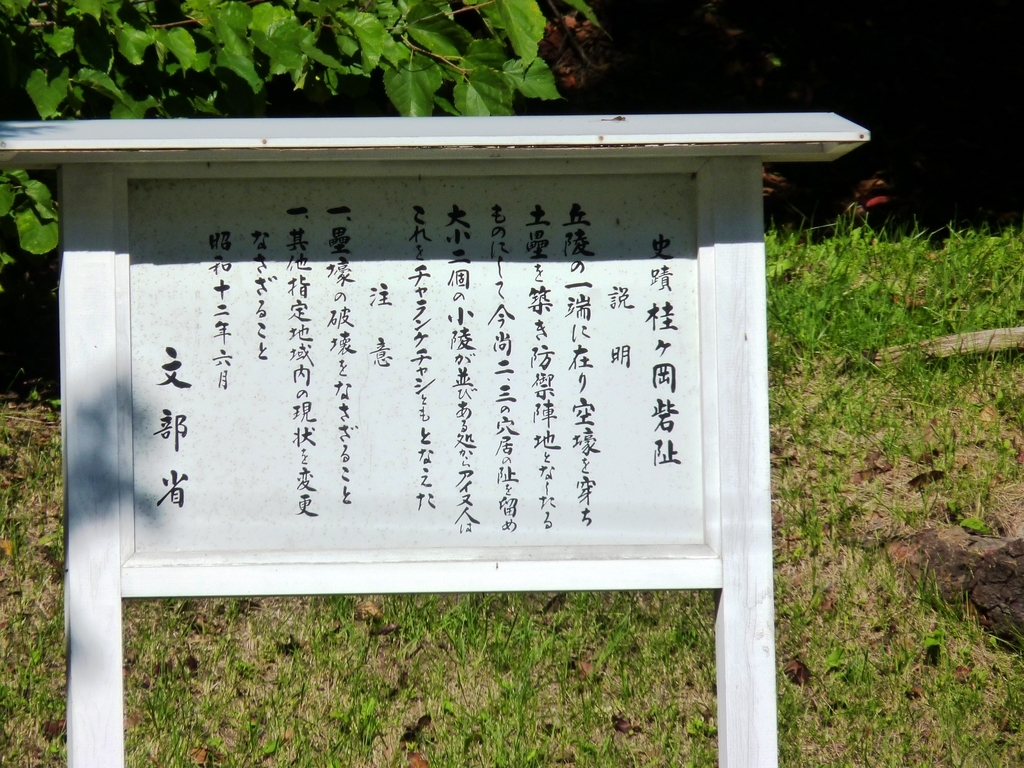 史蹟 桂ヶ岡砦址
説明
丘陵の一端に在り空壕を穿ち
土壘を築き防禦陣地となしたる
ものにして今尚二、三の穴居の趾を留め
大小二個の小陵が並びある処からアイヌ人は
これをチャランケチャシともとなえた
注意
一、壘壕の破壊をなさざること
一、其他指定地域内の現状を変更
なさざること
昭和十二年六月
文部省